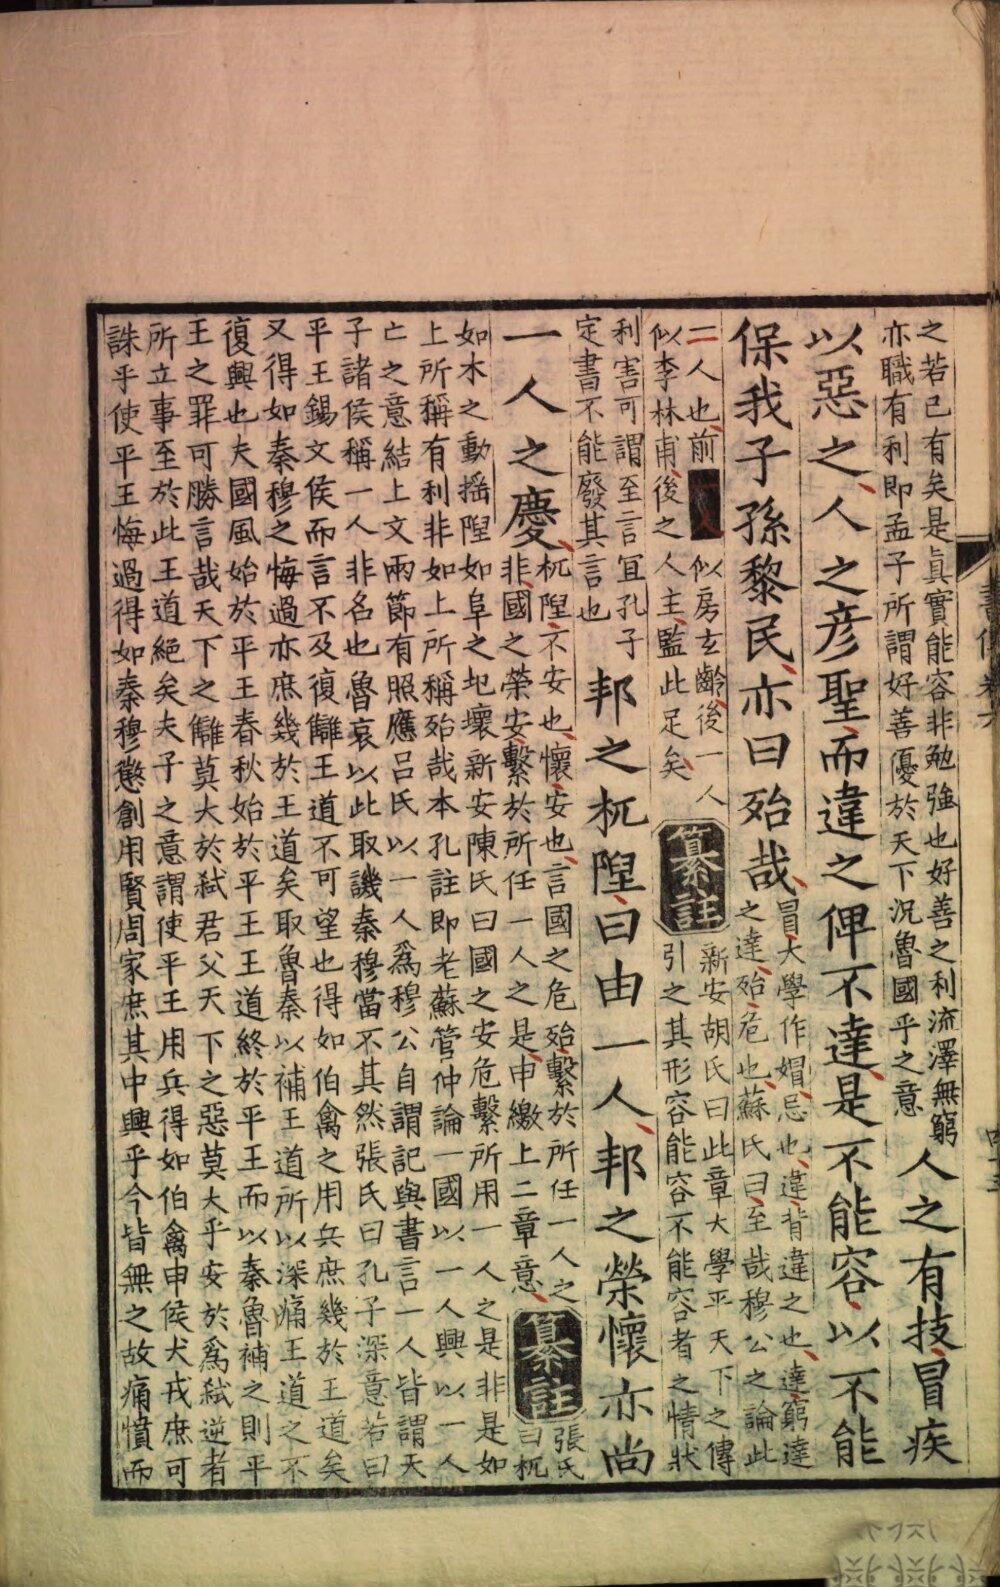 之若己有矣是真實能容非勉強也好善之利流澤無窮
亦職有利即孟子所謂好善優於天下況魯國乎之意
人之有技冒疾
以惡之人之彦聖而違之俾不達是不能容以不能
保我子孫黎民亦曰殆哉
冒大學作媢忌也違背違之也達窮達
之達殆危也蘇氏曰至哉穆公之論此
二人也前一人似房玄齡後一人
似李林甫後之人主監此足矣
纂註
新安胡氏曰此章大學平天下之傳
引之其形容能容不能容者之情狀
利害可謂至言宜孔子
定書不能廢其言也
邦之杌隉曰由一人邦之榮懷亦尚
一人之慶
杌隉不安也懷安也言國之危殆繫於所任一人之
非國之榮安繫於所任一人之是申繳上二章意
纂註
張氏
曰杌
如木之動揺隉如阜之圮壞新安陳氏曰國之安危繫所用一人之是非是如
上所稱有利非如上所稱殆哉本孔註即老蘇管仲論一國以一人興以一人
亡之意結上文兩節有照應吕氏以一人爲穆公自謂記與書言一人皆謂天
子諸侯稱一人非名也魯哀以此取譏秦穆當不其然張氏曰孔子深意若曰
平王錫文侯而言不及復讎王道不可望也得如伯禽之用兵庶幾於王道矣
又得如秦穆之悔過亦庶幾於王道矣取魯秦以補王道所以深痛王道之不
復興也夫國風始於平王春秋始於平王王道終於平王而以秦魯補之則平
王之罪可勝言哉天下之讎莫大於弑君父天下之惡莫大乎安於爲弑逆者
所立事至於此王道絶矣夫子之意謂使平王用兵得如伯禽申侯犬戎庶可
誅乎使平王悔過得如秦穆懲創用賢周家庶其中興乎今皆無之故痛憤而